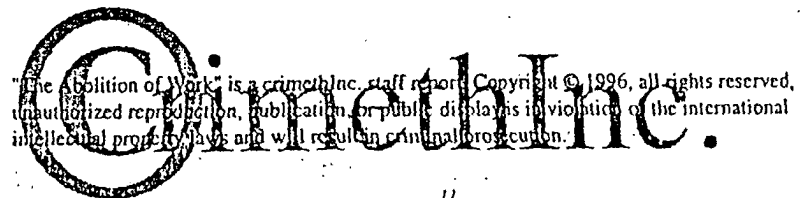 ©CrimethInc.
"The Abolition of Work" is a crimethInc. staff report. Copyright © 1996, all rights reserved,
unauthorized reproduction, publication, or public display is in violation of the international
intellectual property laws and will result in criminal prosecution.